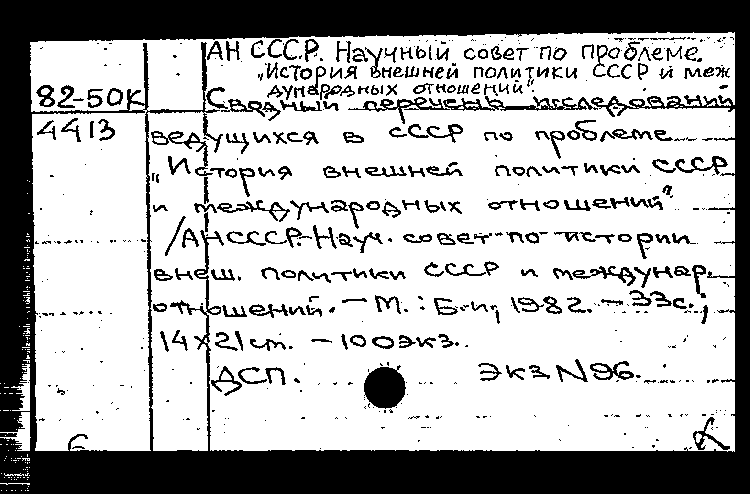 АН СССР. Научный совет по проблеме
„История внешней политики СССР и меж
дународных отношений".
82-50К Сводный перечень исследований
4413 ведущихся в СССР по проблеме
„История внешней политики СССР
и международных отношений"
/АН СССР. Науч. совет по истории
внеш. политики СССР и междунар.
отношений. – М.: Б.и, 1982. – 33с.;
14х21 cm. – 100 экз.
ДСП. Экз N 96.